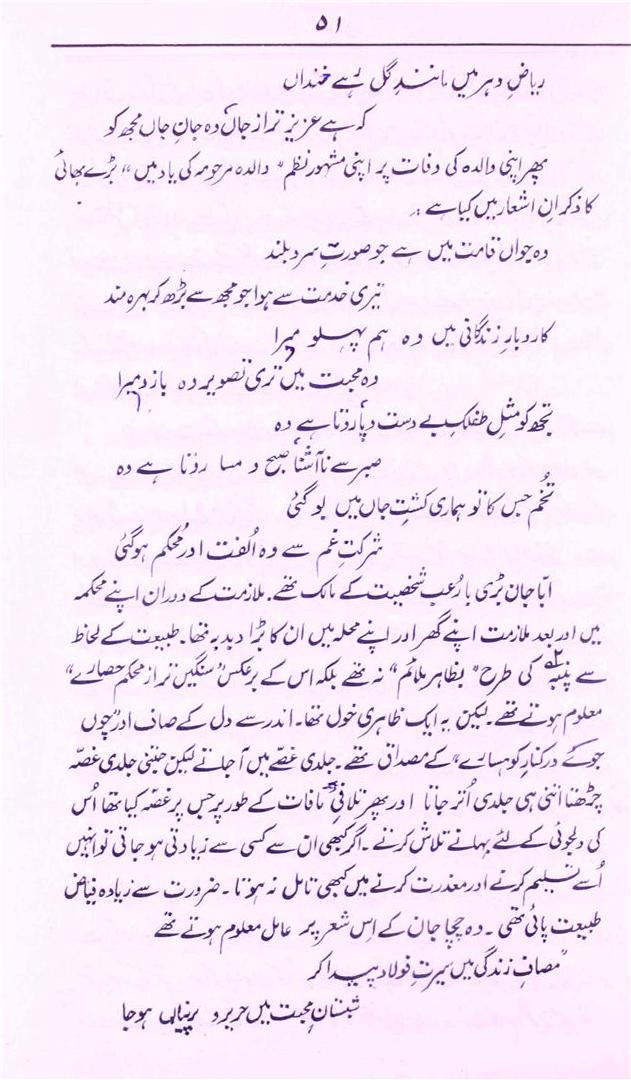 ۵۱
ریاضِ دہر میں مانندِ گل رہے خنداں
کہ ہے عزیز تر از جاں وہ جانِ جاں مجھ کو
پھر اپنی والدہ کی وفات پر اپنی مشہور نظم "والدہ مرحومہ کی یاد میں" بڑے بھائی
کا ذکر ان اشعار میں کیا ہے :
وہ جواں قامت میں ہے جو صورتِ سرو بلند
تیری خدمت سے ہوا جو مجھ سے بڑھ کر بہرہ مند
کاروبارِ زندگانی میں وہ ہم پہلو مرا
وہ محبت میں تری تصویر وہ بازو مرا
تجھ کو مثلِ طفلکِ بے دست و پا روتا ہے وہ
صبر سے نا آشنا صبح و مسا روتا ہے وہ
تخم جس کا تو ہماری کشتِ جاں میں بو گئی
شرکتِ غم سے وہ الفت اور محکم ہو گئی
ابا جان بڑی بارُعب شخصیت کے مالک تھے۔ ملازمت کے دوران اپنے محکمہ
میں اور بعد ملازمت اپنے گھر اور اپنے محلہ میں ان کا بڑا دبدبہ تھا۔ طبیعت کے لحاظ
سے پنبہ کی طرح "بظاہر ملائم" نہ تھے بلکہ اس کے برعکس "سنگیں تر از محکم حصارے"
معلوم ہوتے تھے۔ لیکن یہ ایک ظاہری خول تھا۔ اندر سے دل کے صاف اور "چوں
جوئے در کنارِ کوہسارے" کے مصداق تھے۔ جلدی غصے میں آ جاتے لیکن جتنی جلدی غصّہ
چڑھتا اتنی ہی جلدی اُتر جاتا اور پھر تلافیِ مافات کے طور پر جس پر غصّہ کیا تھا اُس
کی دلجوئی کے لئے بہانے تلاش کرتے۔ اگر کبھی ان سے کسی سے زیادتی ہو جاتی تو انہیں
اُسے تسلیم کرنے اور معذرت کرنے میں کبھی تامل نہ ہوتا۔ ضرورت سے زیادہ فیاض
طبیعت پائی تھی۔ وہ چچا جان کے اِس شعر پر عامل معلوم ہوتے تھے
"مصافِ زندگی میں سیرتِ فولاد پیدا کر
شبستانِ محبت میں حریر و پرنیاں ہو جا